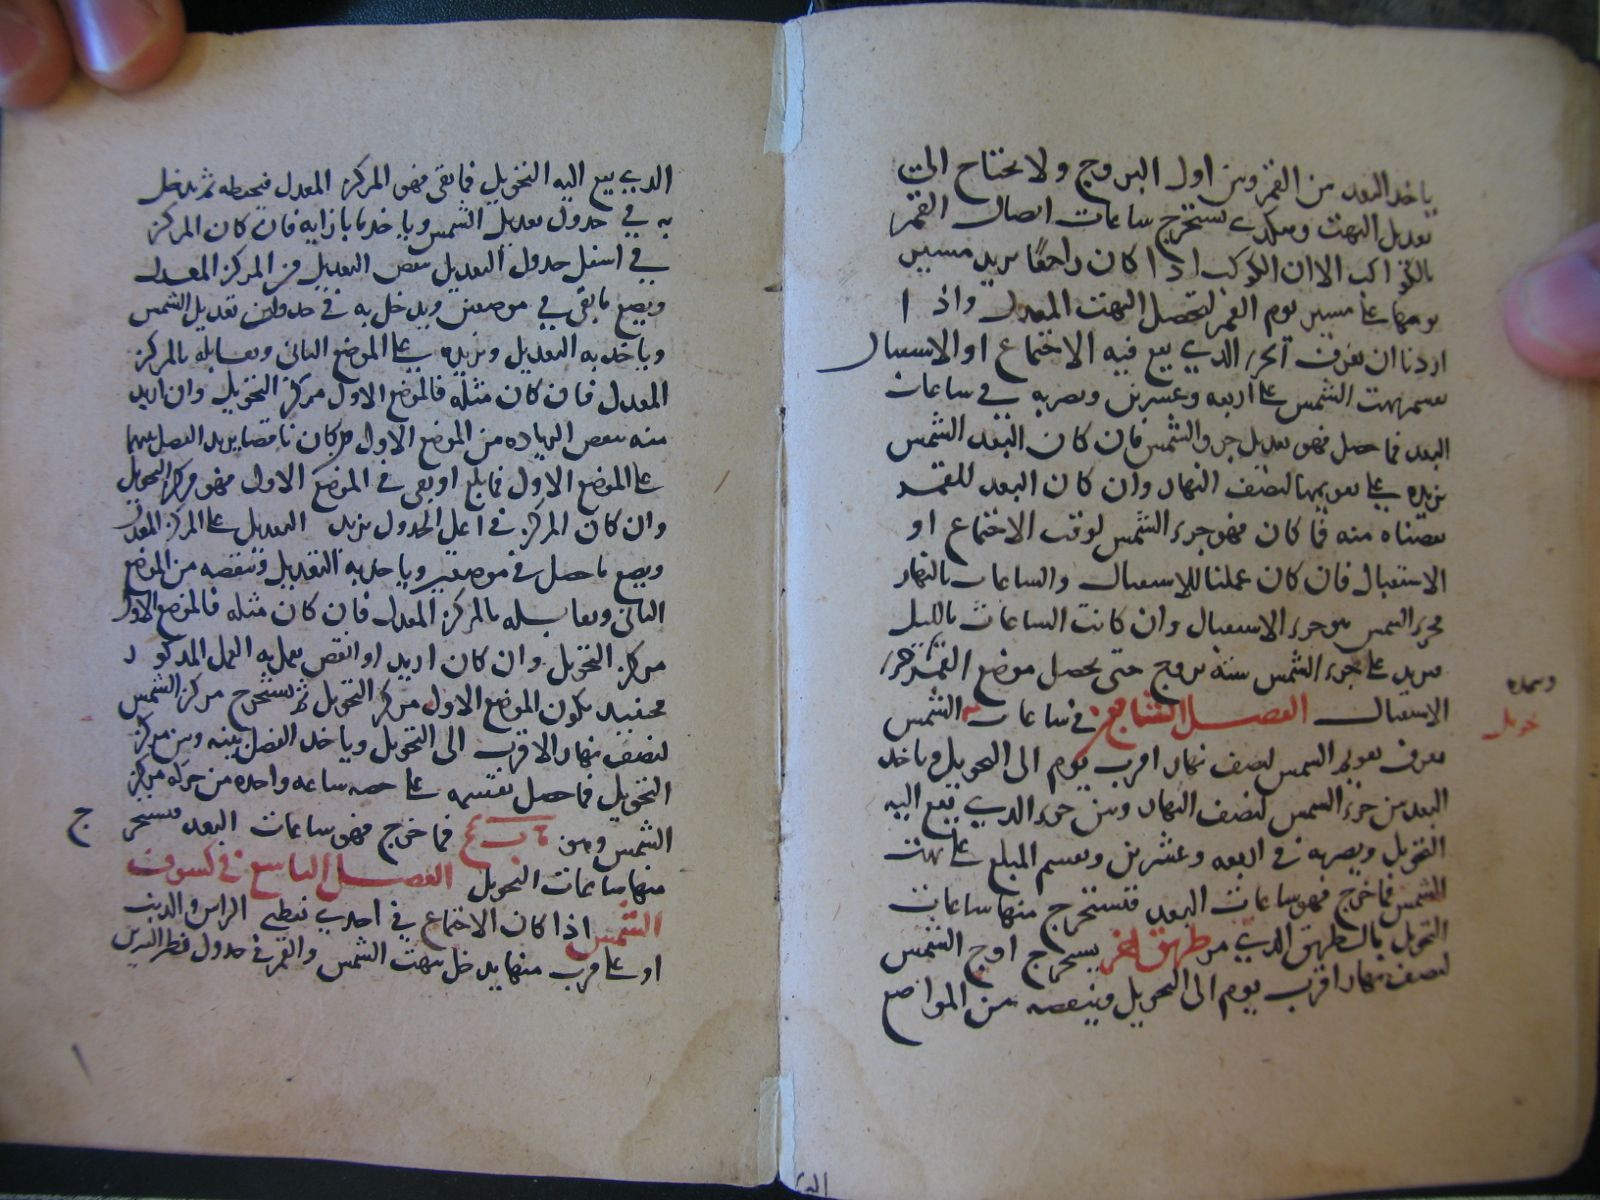 ياخد البعد من القمر وبين اول البروج ولا يحتاج الى
تعديل البهت وهكدي نستخرج ساعات اتصال القمر
بالكواكب الا ان الكوكب اذا كان راجعًا نريد مسير
يومها على مسير يوم القمر لتحصل البهت المعدل واذا
اردنا ان نعرف الجزء الدي يقع فيه الاجتماع او الاستقبال
نقسم بهت الشمس على اربعه وعشرين ونضربه في ساعات
البعد فما حصل فهو تعديل جزو الشمس فان كان البعد الشمس
نزيده على تقويمها لنصف النهار وان كان البعد للقمر
نقصناه منه فما كان فهو جزء الشمس لوقت الاجتماع او
الاستقبال فان كان عملنا للاستقبال والساعات بالنهار
فجزء الشمس هو جزء الاستقبال وان كانت الساعات بالليل
فنزيد على جزء الشمس ستة بروج حتى يحصل موضع القمر جزء
الاستقبال الفصل الثامن في ساعات الشمس
تحويل
نعرف تقويم الشمس لنصف نهار اقرب يوم الى التحويل وياخد
البعد بين جزء الشمس لنصف النهار وبين جزء الدي يقع اليه
التحويل ويضربه في اربعه وعشرين ونقسم المبلغ على بهت
الشمس فما خرج فهو ساعات البعد فتستخرج منها ساعات
التحويل بالطريق الدي مر طريق اخر يستخرج اوج الشمس
لنصف نهار اقرب يوم الى التحويل وينقصه من المواضع
الدي يقع اليه التحويل فما بقى فهو المركز المعدل فيحفظه ثم يدخل
به في جدول تعديل الشمس وياخد ما بازايه فان كان المركز
في اسفل جدول التعديل نقص التعديل من المركز المعدل
ويضع ما بقى في موضعين ويدخل به في جدولين تعديل الشمس
وياخد به التعديل ويزيده على الموضع الثانى ويقابله بالمركز
المعدل فان كان مثله فالموضع الاول مركز التحويل وان ازيد
منه نقص الزياده من الموضع الاول وان كان ناقصا يزيد الفضل بينهما
على الموضع الاول فما بلغ او بقى في الموضع الاول فهو مركز التحويل
وان كان المركز في اعلى الجدول يزيد التعديل على المركز المعدل
ويضع ما حصل في موضعين وياخد به التعديل وتنقصه من الموضع
الثانى ويقابله بالمركز المعدل فان كان مثله فالموضع الاول
مركز التحويل وان كان ازيد او انقص يعمل به العمل المدكور
فحينيد يكون الموضع الاول مركز التحويل ثم يستخرج مركز الشمس
لنصف نهار الاقرب الى التحويل وياخد الفضل بينه وبين مركز
التحويل فما حصل نقسمه على حصه ساعه واحده من حركة مركز
الشمس وهو فما خرج فهو ساعات البعد فنستخرج
منها ساعات التحويل الفصل التاسع في كسوف
الشمس اذا كان الاجتماع في احدى نقطتي الراس والدنب
او على قرب منها يدخل ببهت الشمس والقمر في جدول قطر النيرين